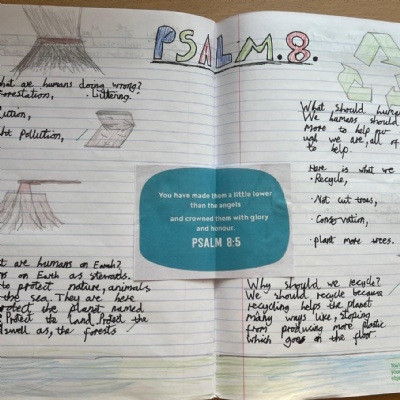 PSALM.8.
hat are humans doing wrong?
forestation, · Littering.
lution,
ght Pollution,
What should huma
We humans should
more to help
ugh we are, all of
to help.
Here is what we
· Recycle,
· Not cut trees,
· Conservation,
· plant more trees.
You have made them a little lower
than the angels
and crowned them with glory
and honour.
PSALM 8:5
at are humans on Earth?
on Earth as stewards.
to protect nature, animals
the sea. They are here
rotect the planet named
protect the land
swell as, the forests
Why should we recycle?
We should recycle because
recycling helps the planet
many ways like, stoping
from producing more plastic
which goes on the floor.